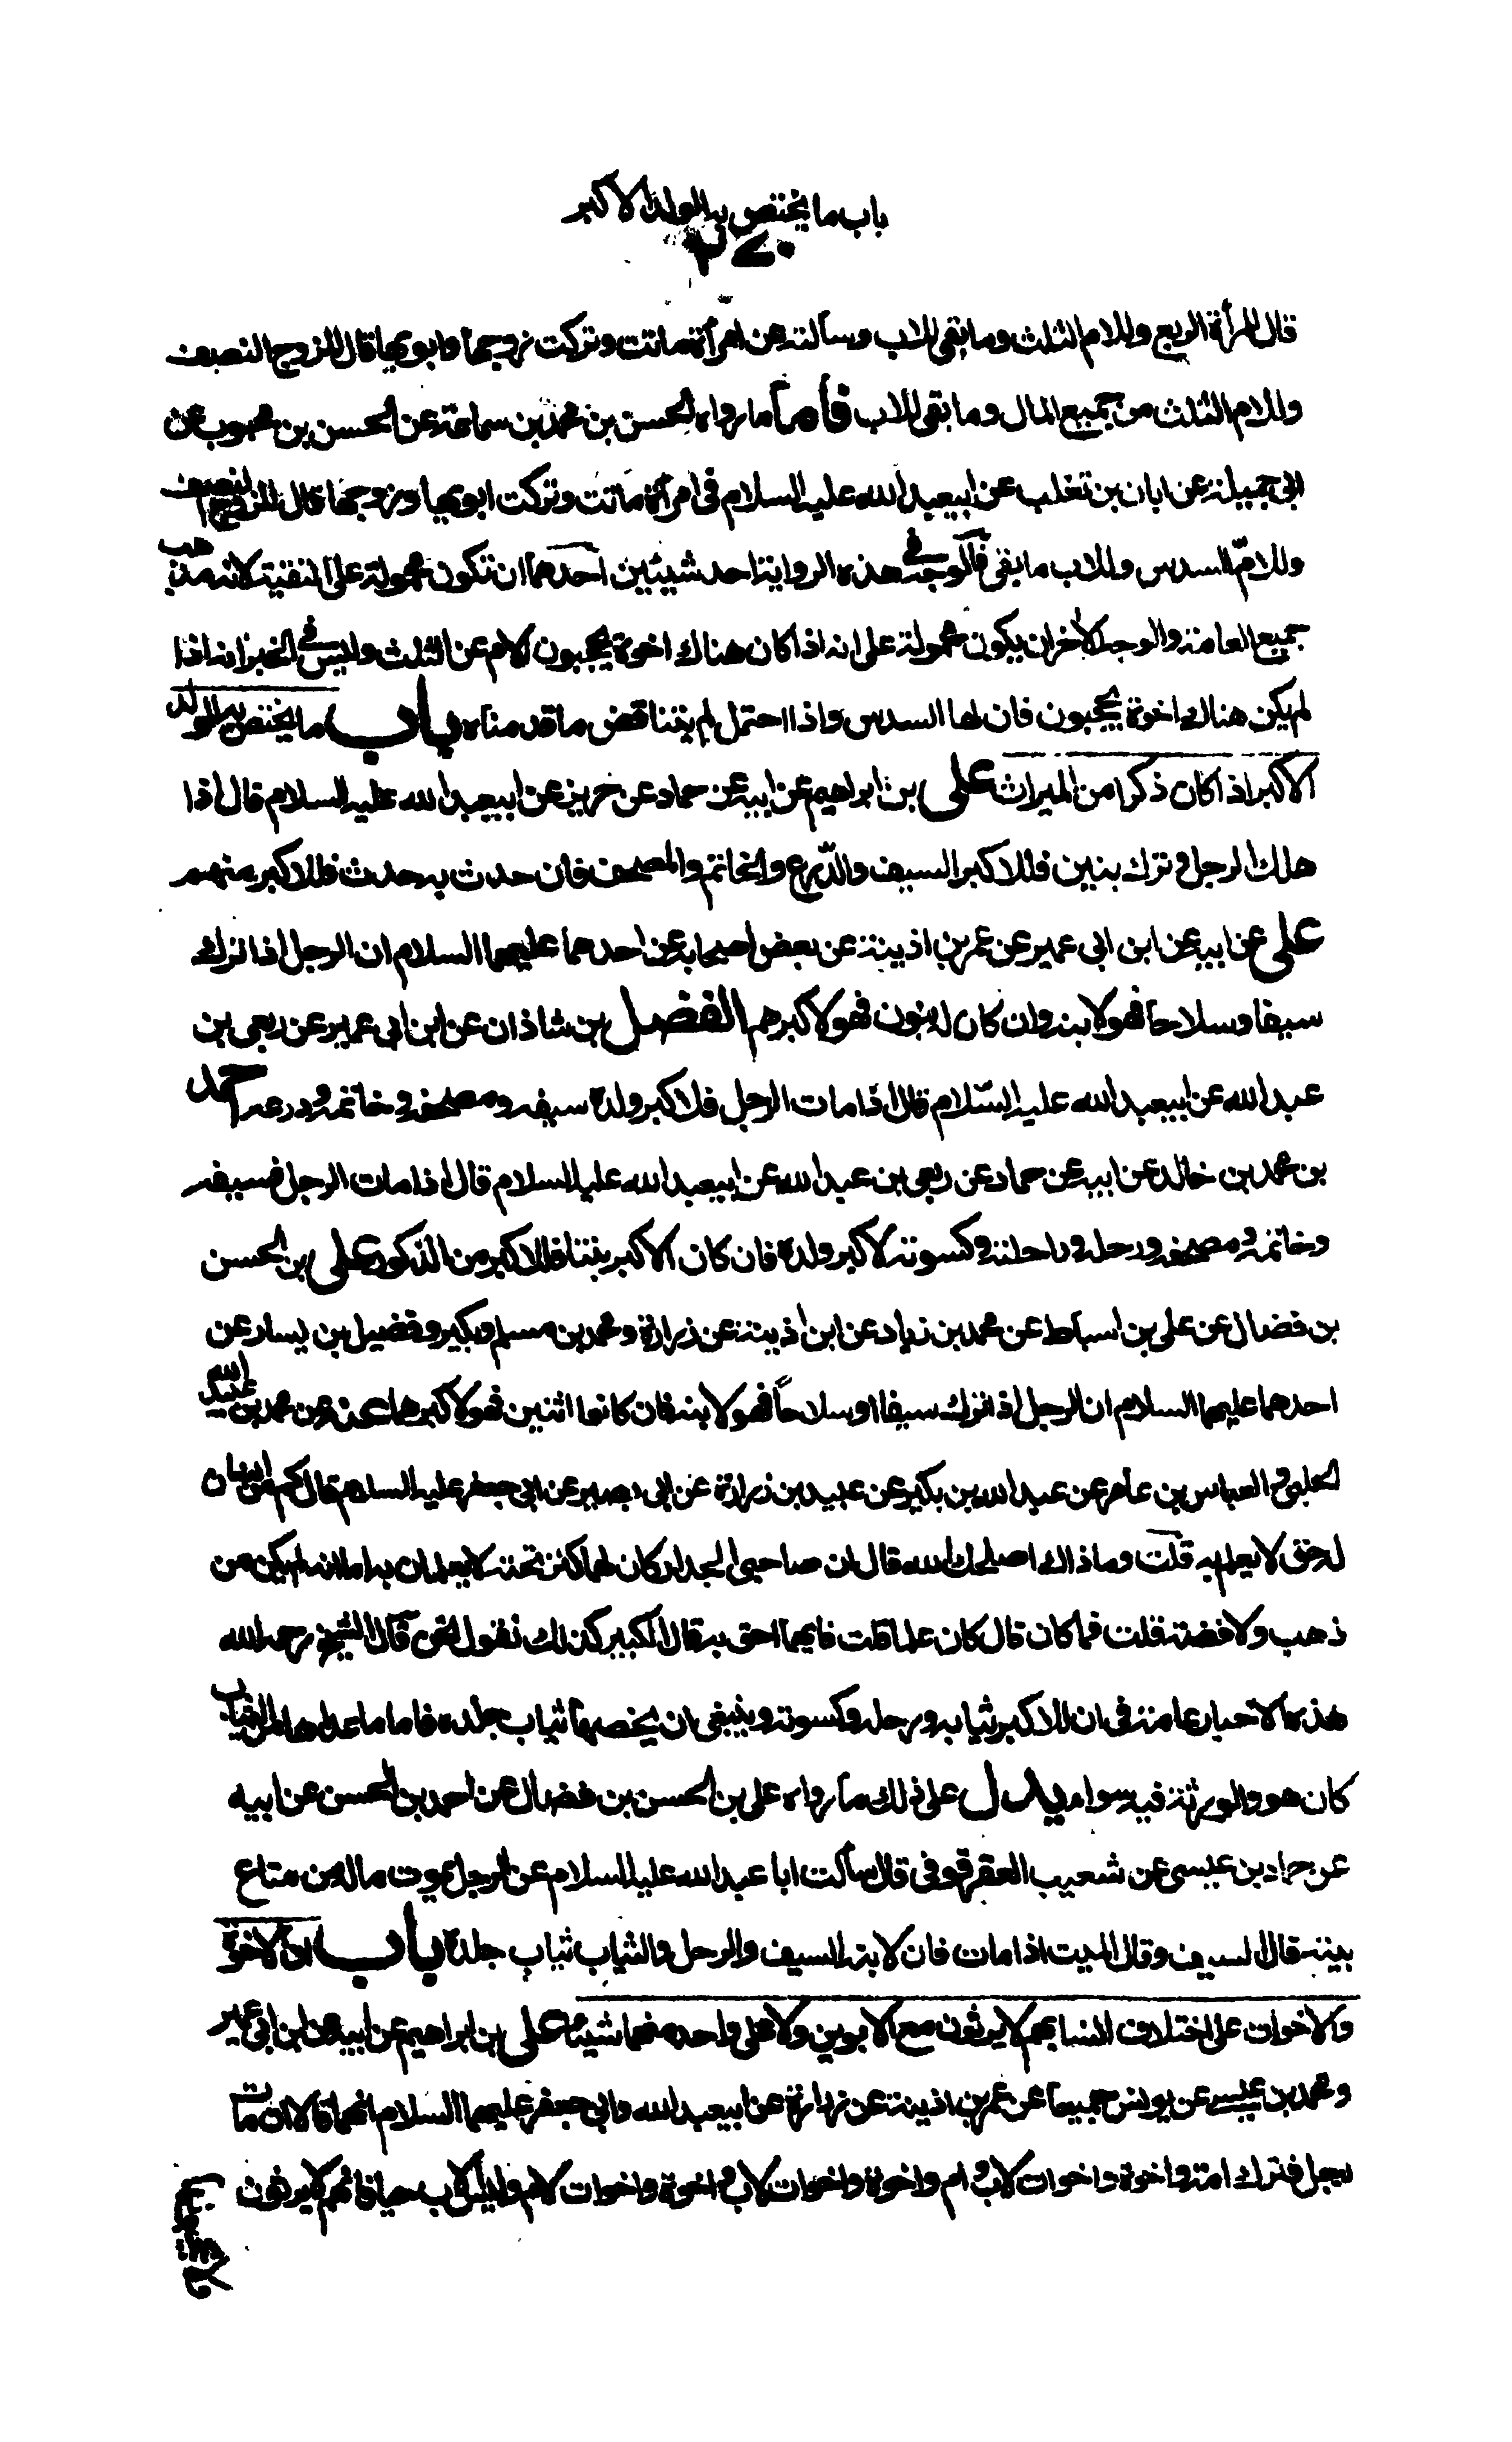 باب ما يختص به الولد الاكبر
قال للمرأة الربع وللام الثلث وما بقى للاب وسألته عن امرأة ماتت وتركت زوجها وابويها قال للزوج النصف
وللام الثلث من جميع المال وما بقى للاب فأما ما رواه الحسن بن محمد بن سماعة عن الحسن بن محبوب عن
ابى جميلة عن ابان بن تغلب عن ابيعبد الله عليه السلام فى امرأة ماتت وتركت ابويها وزوجها قال للزوج النصف
وللامّ السدس وللاب ما بقى فالوجه فى هذه الرواية احد شيئين احدهما ان تكون محمولة على التقية لانه مذهب
جميع العامة والوجه الاخر ان يكون محمولة على انه اذا كان هناك اخوة يحجبون الام عن الثلث وليس فى الخبر انه اذا
لم يكن هناك اخوة يحجبون فان لها السدس واذا احتمل لم يتناقض ما قدمناه باب ما يختص به الولد
الاكبر اذا كان ذكرا من الميراث على بن ابراهيم عن ابيه عن حماد عن حريز عن ابيعبد الله عليه السلام قال اذا
هلك الرجل وترك بنين فللاكبر السيف والدّرع والخاتم والمصحف فان حدث به حدث فللاكبر منهم
على عن ابيه عن ابن ابى عمير عن عمر بن اذينة عن بعض اصحابه عن احدهما عليهما السلام ان الرجل اذا ترك
سيفا وسلاحا فهو لابنه وان كان له بنون فهو لاكبرهم الفضل بن شاذان عن ابن ابى عمير عن ربعى بن
عبد الله عن ابيعبد الله عليه السّلام قال اذا مات الرجل فلاكبر ولده سيفه ومصحفه وخاتمه ودرعه احمد
بن محمد بن خالد عن ابيه عن حماد عن ربعى بن عبد الله عن ابيعبد الله عليه السلام قال اذا مات الرجل فسيفه
وخاتمه ومصحفه ورحله وراحلته وكسوته لاكبر ولده فان كان الاكبر بنتا فللاكبر من الذكور على بن الحسن
بن فضال عن على بن اسباط عن محمد بن زياد عن ابن اذينة عن زرارة ومحمد بن مسلم وبكير وفضيل بن يسار عن
احدهما عليهما السلام ان الرجل اذا ترك سيفا او سلاحاً فهو لابنه فان كانوا اثنين فهو لاكبرهما عنه عن محمد بن عبيد الله
الحلبى والعباس بن عامر عن عبد الله بن بكير عن عبيد بن زرارة عن ابى بصير عن ابى جعفر عليه السلام قال كم من انسان
له حق لا يعلم به قلت وما ذاك اصلحك الله قال ان صاحبى الجدار كان لهما كنز تحته لا يعلمان به اما انه لم يكن من
ذهب ولا فضة قلت فما كان قال كان علما قلت فايهما احق به قال الكبير كذلك نقول نحن قال الشيخ رحمه الله
هذه الاخبار عامة فى ان للاكبر ثيابه ورحله وكسوته وينبغى ان يخصها ثياب جلده فاما ما عداها من الثياب
كان هو والورثة فيه سواء يدل على ذلك ما رواه على بن الحسن بن فضال عن احمد بن الحسن عن ابيه
عن حماد بن عيسى عن شعيب العقرقوفى قال سألت ابا عبد الله عليه السلام عن الرجل يموت ما له من متاع
بيته قال السيف وقال الميت اذا مات فان لابنه السيف والرحل والثياب ثياب جلده باب ان الاخوة
والاخوات على اختلاف انسابهم لا يرثون مع الابوين ولا مع واحد منهما شيئا على بن ابراهيم عن ابيه عن ابن ابى عمير
ومحمد بن عيسى عن يونس جميعا عن عمر بن اذينة عن زرارة عن ابيعبد الله وابى جعفر عليهما السلام انهما قالا ان مات
رجل فترك امه واخوة واخوات لاب وام واخوة واخوات لاب واخوة واخوات لام وليس الاب حيا فانهم لا يرثون